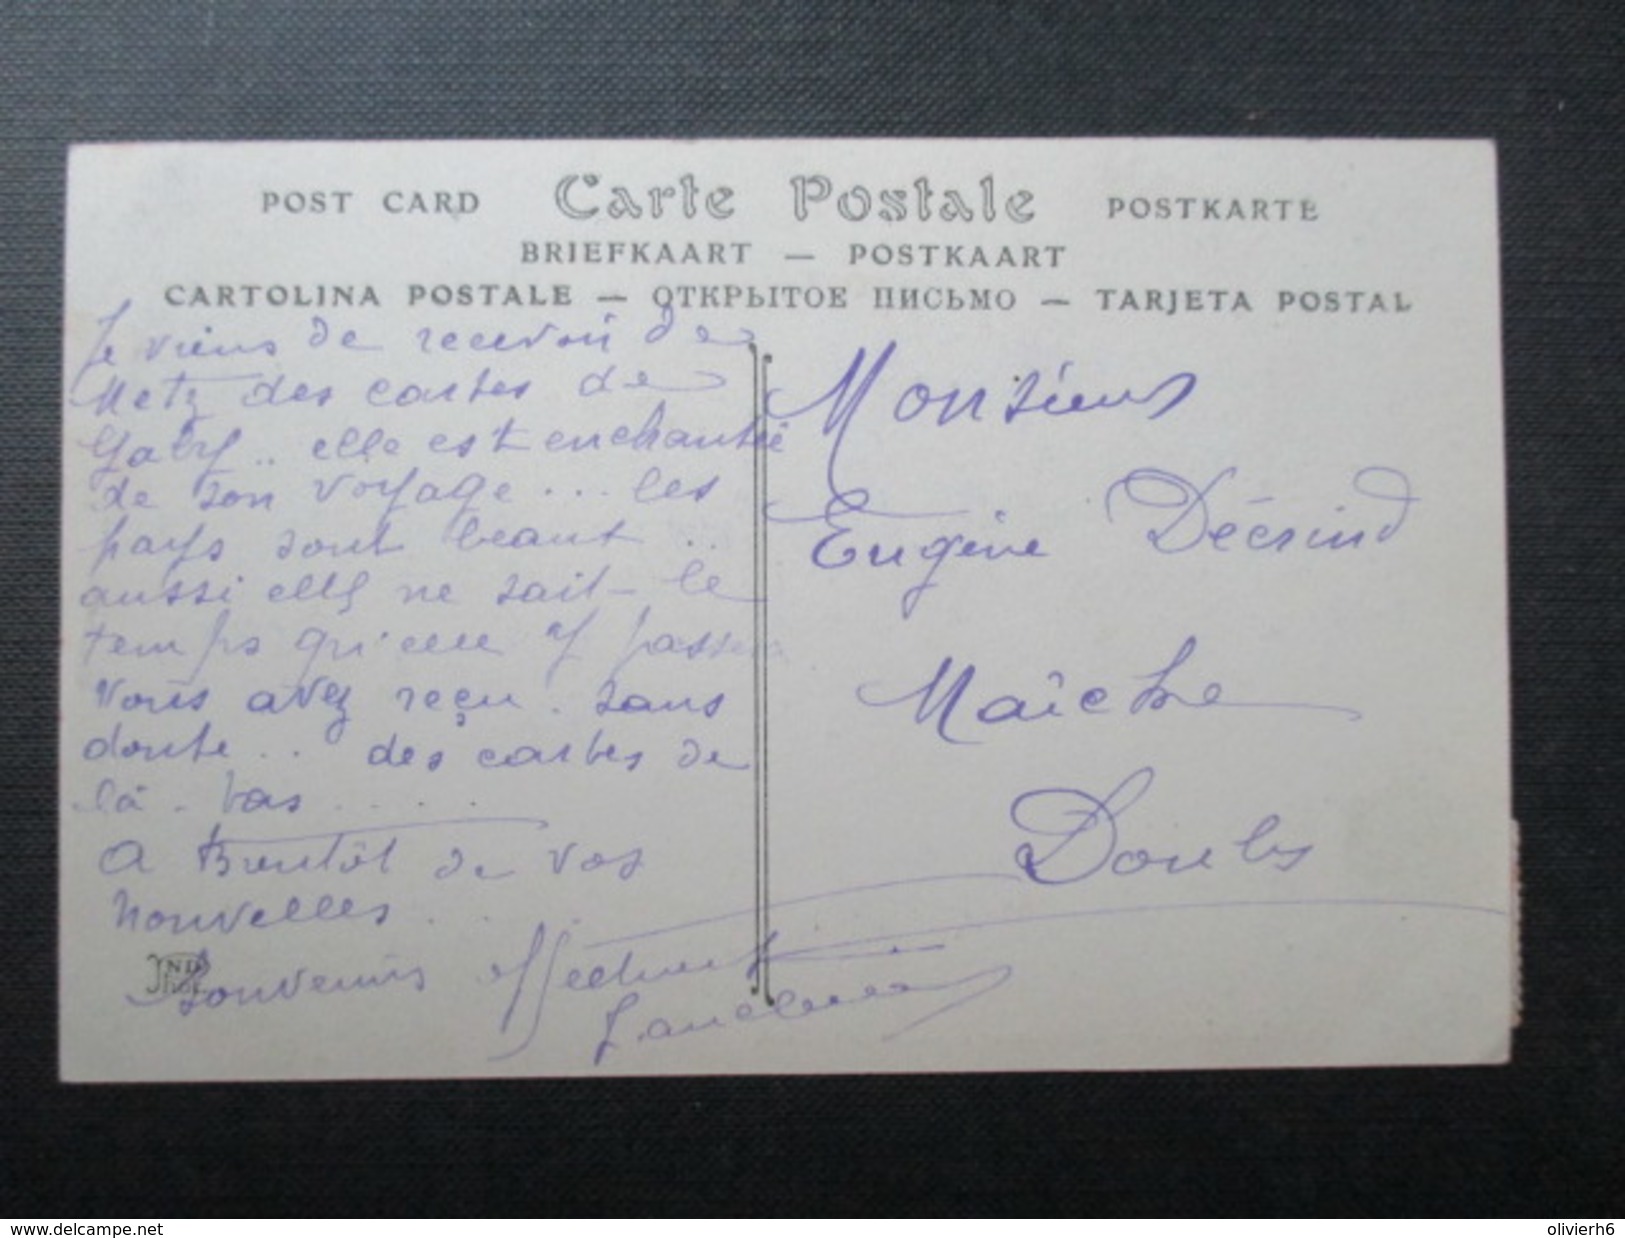 POST CARD Carte Postale POSTKARTE
BRIEFKAART — POSTKAART
CARTOLINA POSTALE — ОТКРЫТОЕ ПИСЬМО — TARJETA POSTAL
Je viens de recevoir de
Metz des cartes de
Gaby .. elle est enchantée
de son voyage ... les
pays sont beaux ..
aussi elle ne sait le
temps qu'elle y passera
vous avez reçu . sans
doute .. des cartes de
là - bas .....
A Bientôt de vos
nouvelles ..
Souvenirs affectueux
Monsieur
Eugène
Maîche
Doubs
ND
delcampe.net
olivierh6